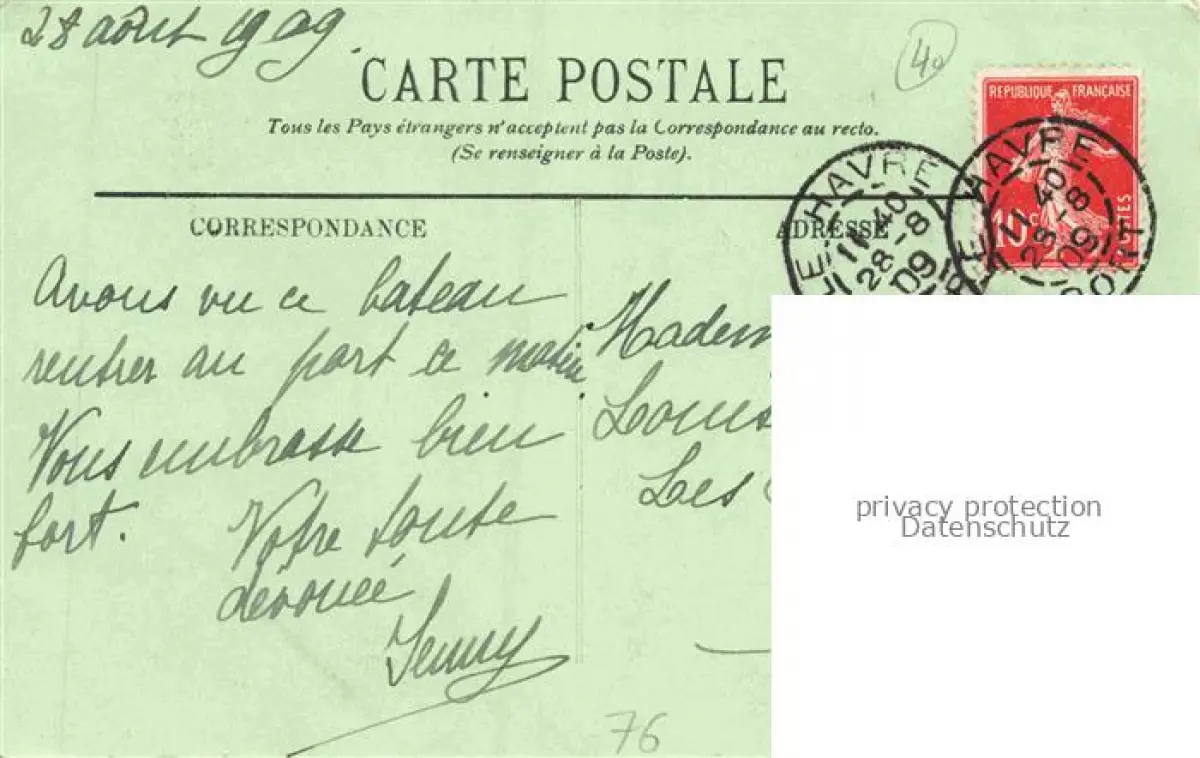 28 août 1909.
40
CARTE POSTALE
Tous les Pays étrangers n'acceptent pas la Correspondance au recto.
(Se renseigner à la Poste).
REPUBLIQUE FRANÇAISE
10c POSTES
LE HAVRE
11 40
28-8
09
LE HAVRE PORT
11 40
28-8
09
CORRESPONDANCE
ADRESSE
Avons vu ce bateau
rentrer au port ce matin.
Vous embrasse bien
fort.
Votre toute
dévouée
Jenny
Madem
Louis
Les
privacy protection
Datenschutz
76